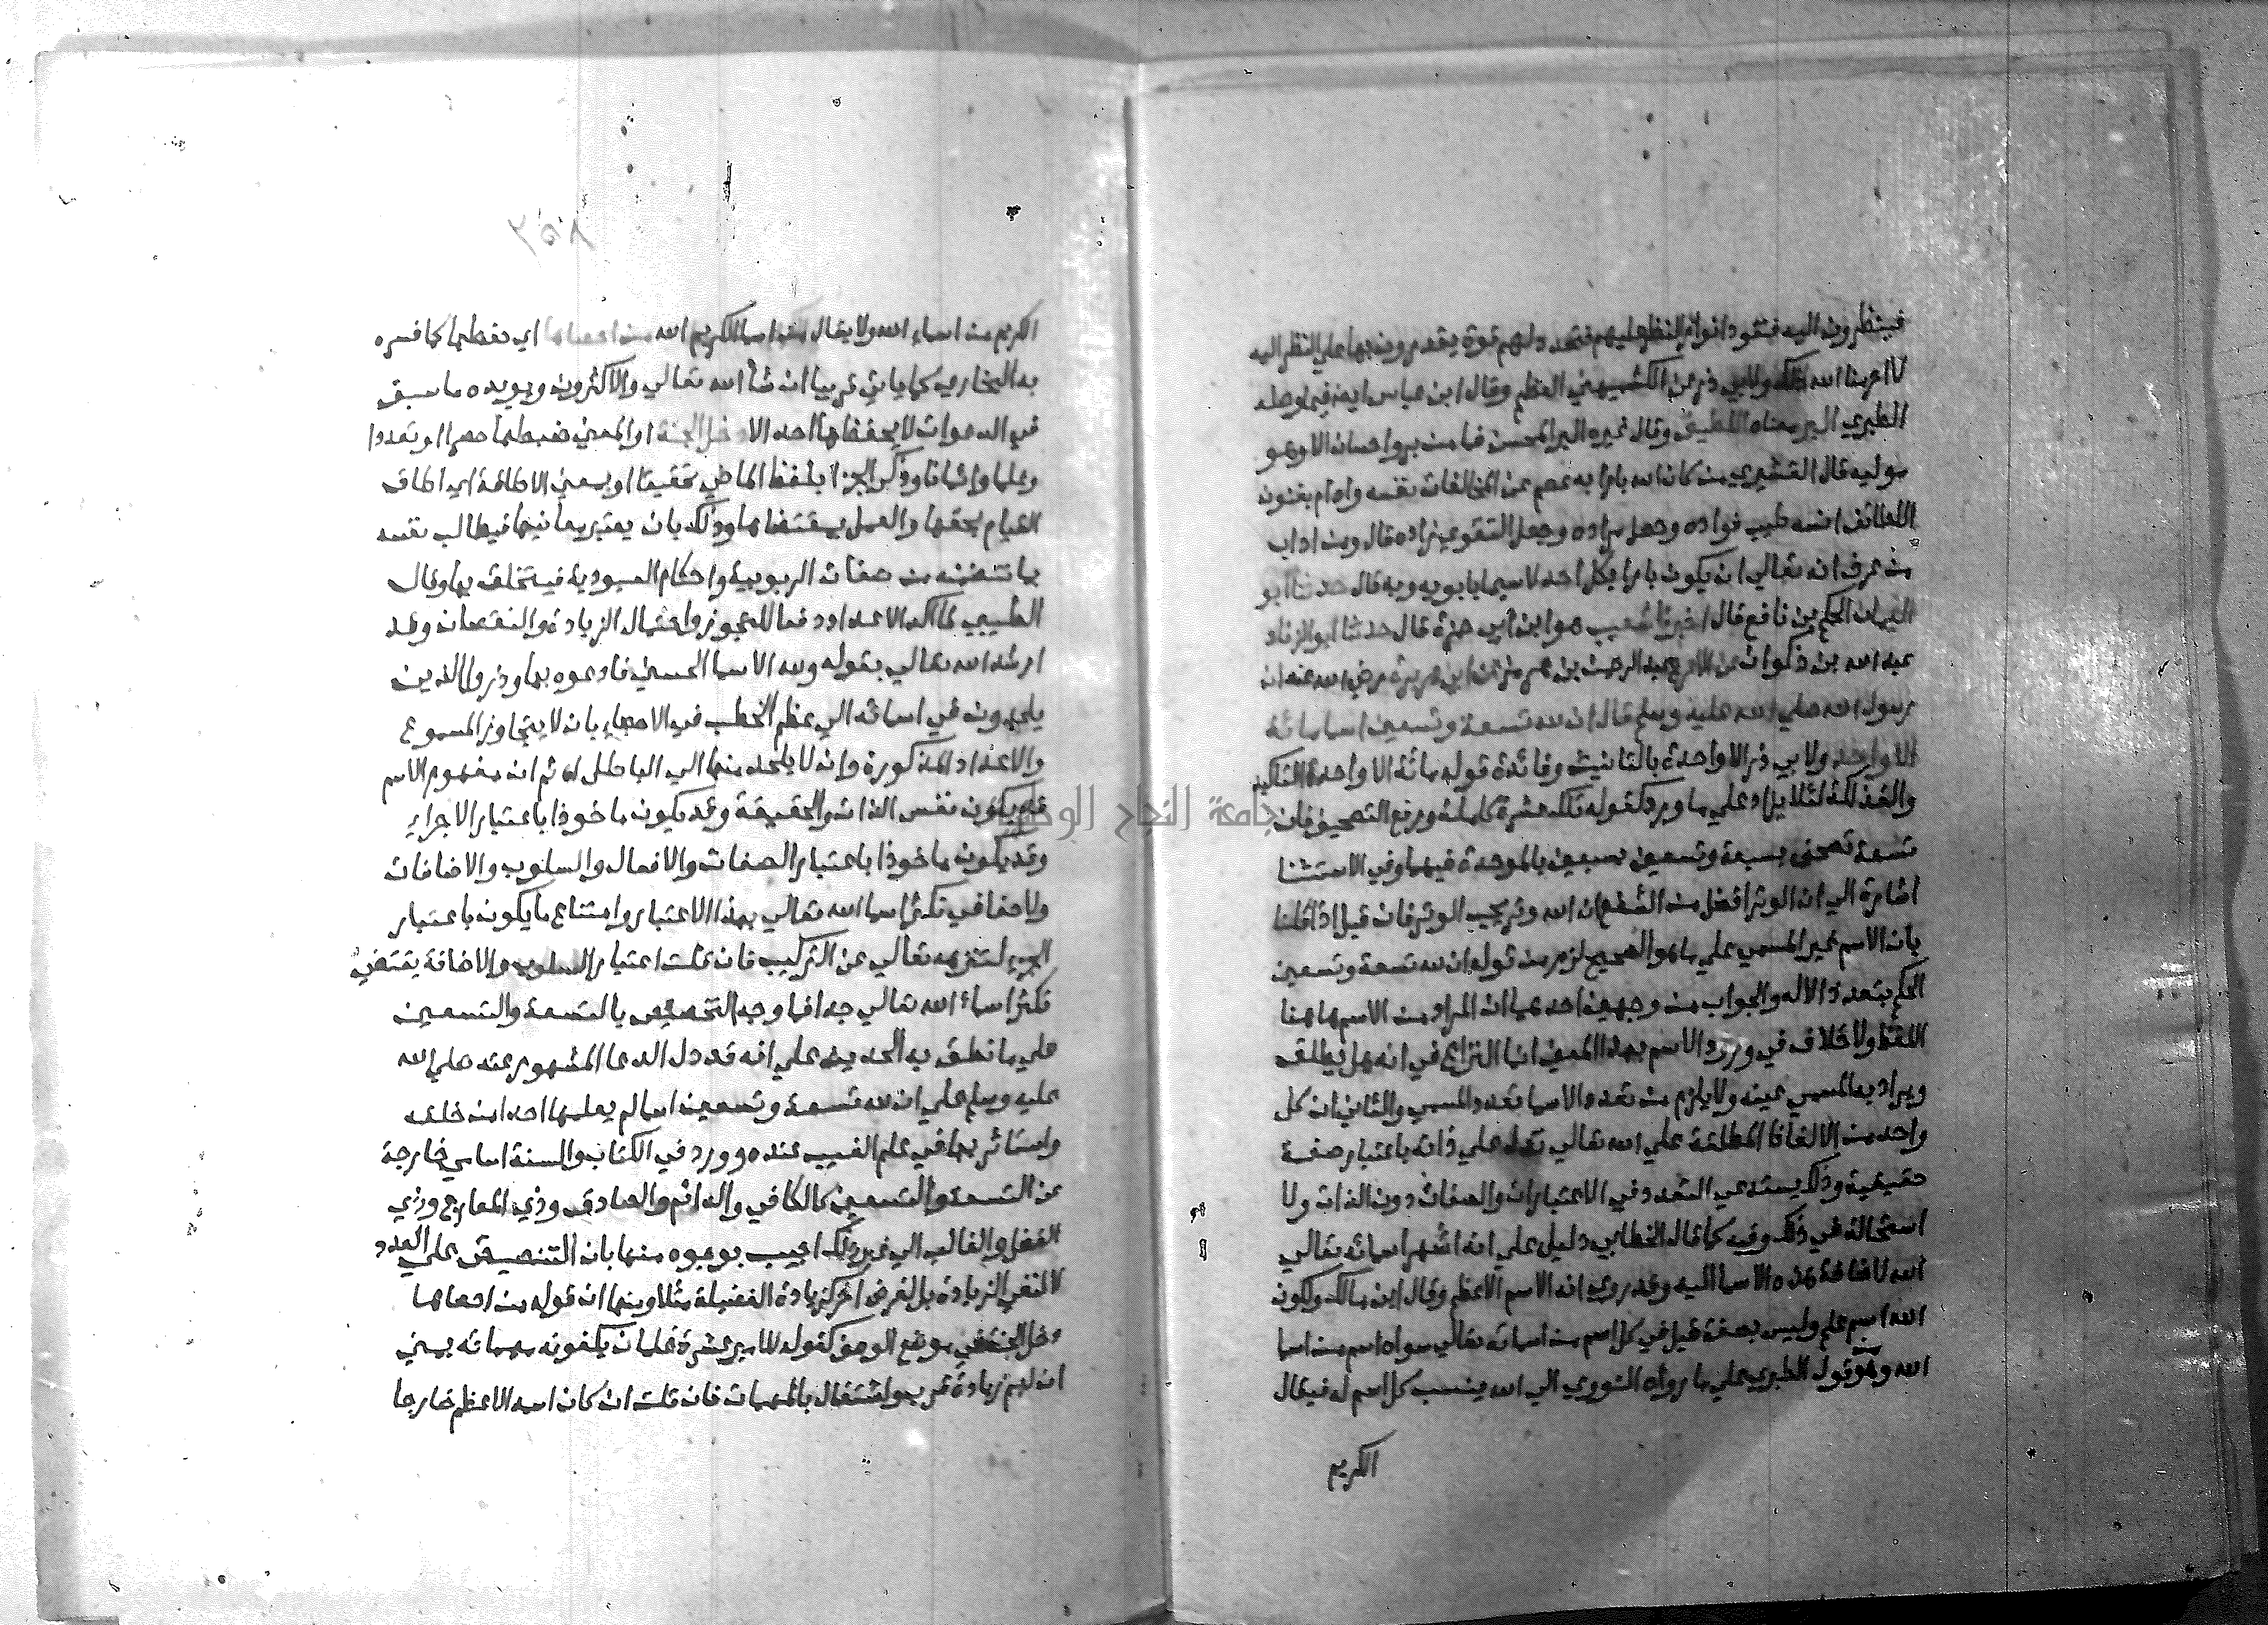 فينظرون اليه فتعود انوار النظر عليهم فتجدد لهم قوة يقدرون بها علي النظر اليه
لا احرمنا الله ذلك ولابي ذر عن الكشميهني العظيم وقال ابن عباس ايضا فيما وصله
الطبري البر معناه اللطيف وقال غيره البر المحسن فما من بر واحسان الا وهو
موليه قال القشيري من كان الله بارا به عصم عن المخالفات نفسه وادام بفنون
اللطائف انسه طيب فواده وحصل مراده وجعل التقوي زاده قال ومن اداب
من عرف انه تعالي ان يكون بارا بكل احد لاسيما بابويه وبه قال حدثنا ابو
اليمان الحكم بن نافع قال اخبرنا شعيب هو ابن ابي حمزة قال حدثنا ابو الزناد
عبد الله بن ذكوان عن الاعرج عبد الرحمن بن هرمز عن ابي هريرة رضي الله عنه ان
رسول الله صلي الله عليه وسلم قال ان لله تسعة وتسعين اسما مائة
الا واحد ولابي ذر الا واحدة بالتانيث وفائدة قوله مائة الا واحدة التاكيد
والفذلكة لئلا يزاد علي ما ورد كقوله تلك عشرة كاملة ورفع التصحيف فان
تسعة تصحف بسبعة وتسعين بسبعين بالموحدة فيهما وفي الاستثنا
اشارة الي ان الوتر افضل من الشفع ان الله وتر يحب الوتر فان قيل اذا قلنا
بان الاسم غير المسمي علي ما هو الصحيح لزم من قوله ان لله تسعة وتسعين
الحكم بتعدد الاله والجواب من وجهين احدهما ان المراد من الاسم هاهنا
اللفظ ولا خلاف في ورود الاسم بهذا المعني انما النزاع في انه هل يطلق
ويراد به المسمي عينه ولا يلزم من تعدد الاسما تعدد المسمي والثاني ان كل
واحد من الالفاظ المطلقة علي الله تعالي تدل علي ذاته باعتبار صفة
حقيقية وذلك يستدعي التعدد في الاعتبارات والصفات دون الذات ولا
استحالة في ذلك وفيه كما قال الخطابي دليل علي ان اشهر اسمائه تعالي
الله لاضافة هذه الاسما اليه وقد روي انه الاسم الاعظم وقال ابن مالك ولكون
الله اسم علم وليس بصفة قيل في كل اسم من اسمائه تعالي سواه اسم من اسما
الله وهو من قول الطبري علي ما رواه النووي الي الله ينسب كل اسم له فيقال
الكريم
الكريم من اسماء الله ولا يقال من اسما الكريم الله من احصاها اي حفظها كما فسره
به البخاري كما ياتي قريبا ان شا الله تعالي والاكثرون ويويده ما سبق
في الدعوات لا يحفظها احد الا دخل الجنة او المعني ضبطها حصرا او تعدادا
وعلما وايمانا وذكر الجزا بلفظ الماضي تحقيقا او بمعني الاطاقة اي اطاق
القيام بحقها والعمل بمقتضاها وذلك بان يعتبر معانيها فيطالب نفسه
بما تتضمنه من صفات الربوبية واحكام العبودية فيتخلق بها وقال
الطيبي انما اكد الاعداد دفعا للتجوز واحتمال الزيادة والنقصان وقد
ارشد الله تعالي بقوله ولله الاسما الحسني فادعوه بها وذروا الذين
يلحدون في اسمائه الي عظم الخطب في الاحصاء بان لا يتجاوز المسموع
والاعداد المذكورة وان لا يلحد منها الي الباطل اه ثم ان مفهوم الاسم
قد يكون نفس الذات والحقيقة وقد يكون ماخوذا باعتبار الاجزاء
وقد يكون ماخوذا باعتبار الصفات والافعال والسلوب والاضافات
ولا خفا في تكثر اسما الله تعالي بهذا الاعتبار وامتناع ما يكون باعتبار
الجزء لتنزهه تعالي عن التركيب فان قلت اعتبار السلوب والاضافة يقتضي
تكثر اسماء الله تعالي جدا فما وجه التخصيص بالتسعة والتسعين
علي ما نطق به الحديث علي انه قد دل الدعا المشهور عنه صلي الله
عليه وسلم علي ان لله تسعة وتسعين اسما لم يعلمها احدا من خلقه
واستاثر بها في علم الغيب عنده وورد في الكتاب والسنة اسامي خارجة
عن التسعة والتسعين كالكافي والدائم والصادق وذي المعارج وذي
الفضل والغالب الي غير ذلك اجيب بوجوه منها بان التنصيص علي العدد
لا لنفي الزيادة بل لغرض اخر كزيادة الفضيلة مثلا ومنها ان قوله من احصاها
دخل الجنة في موضع الوصف كقوله للامير عشرة غلمان يكفونه مهماته بمعني
ان لهم زيادة قرب واشتغال بالمهمات فان قلت ان كان اسمه الاعظم خارجا
جامعة النجاح الوطنية